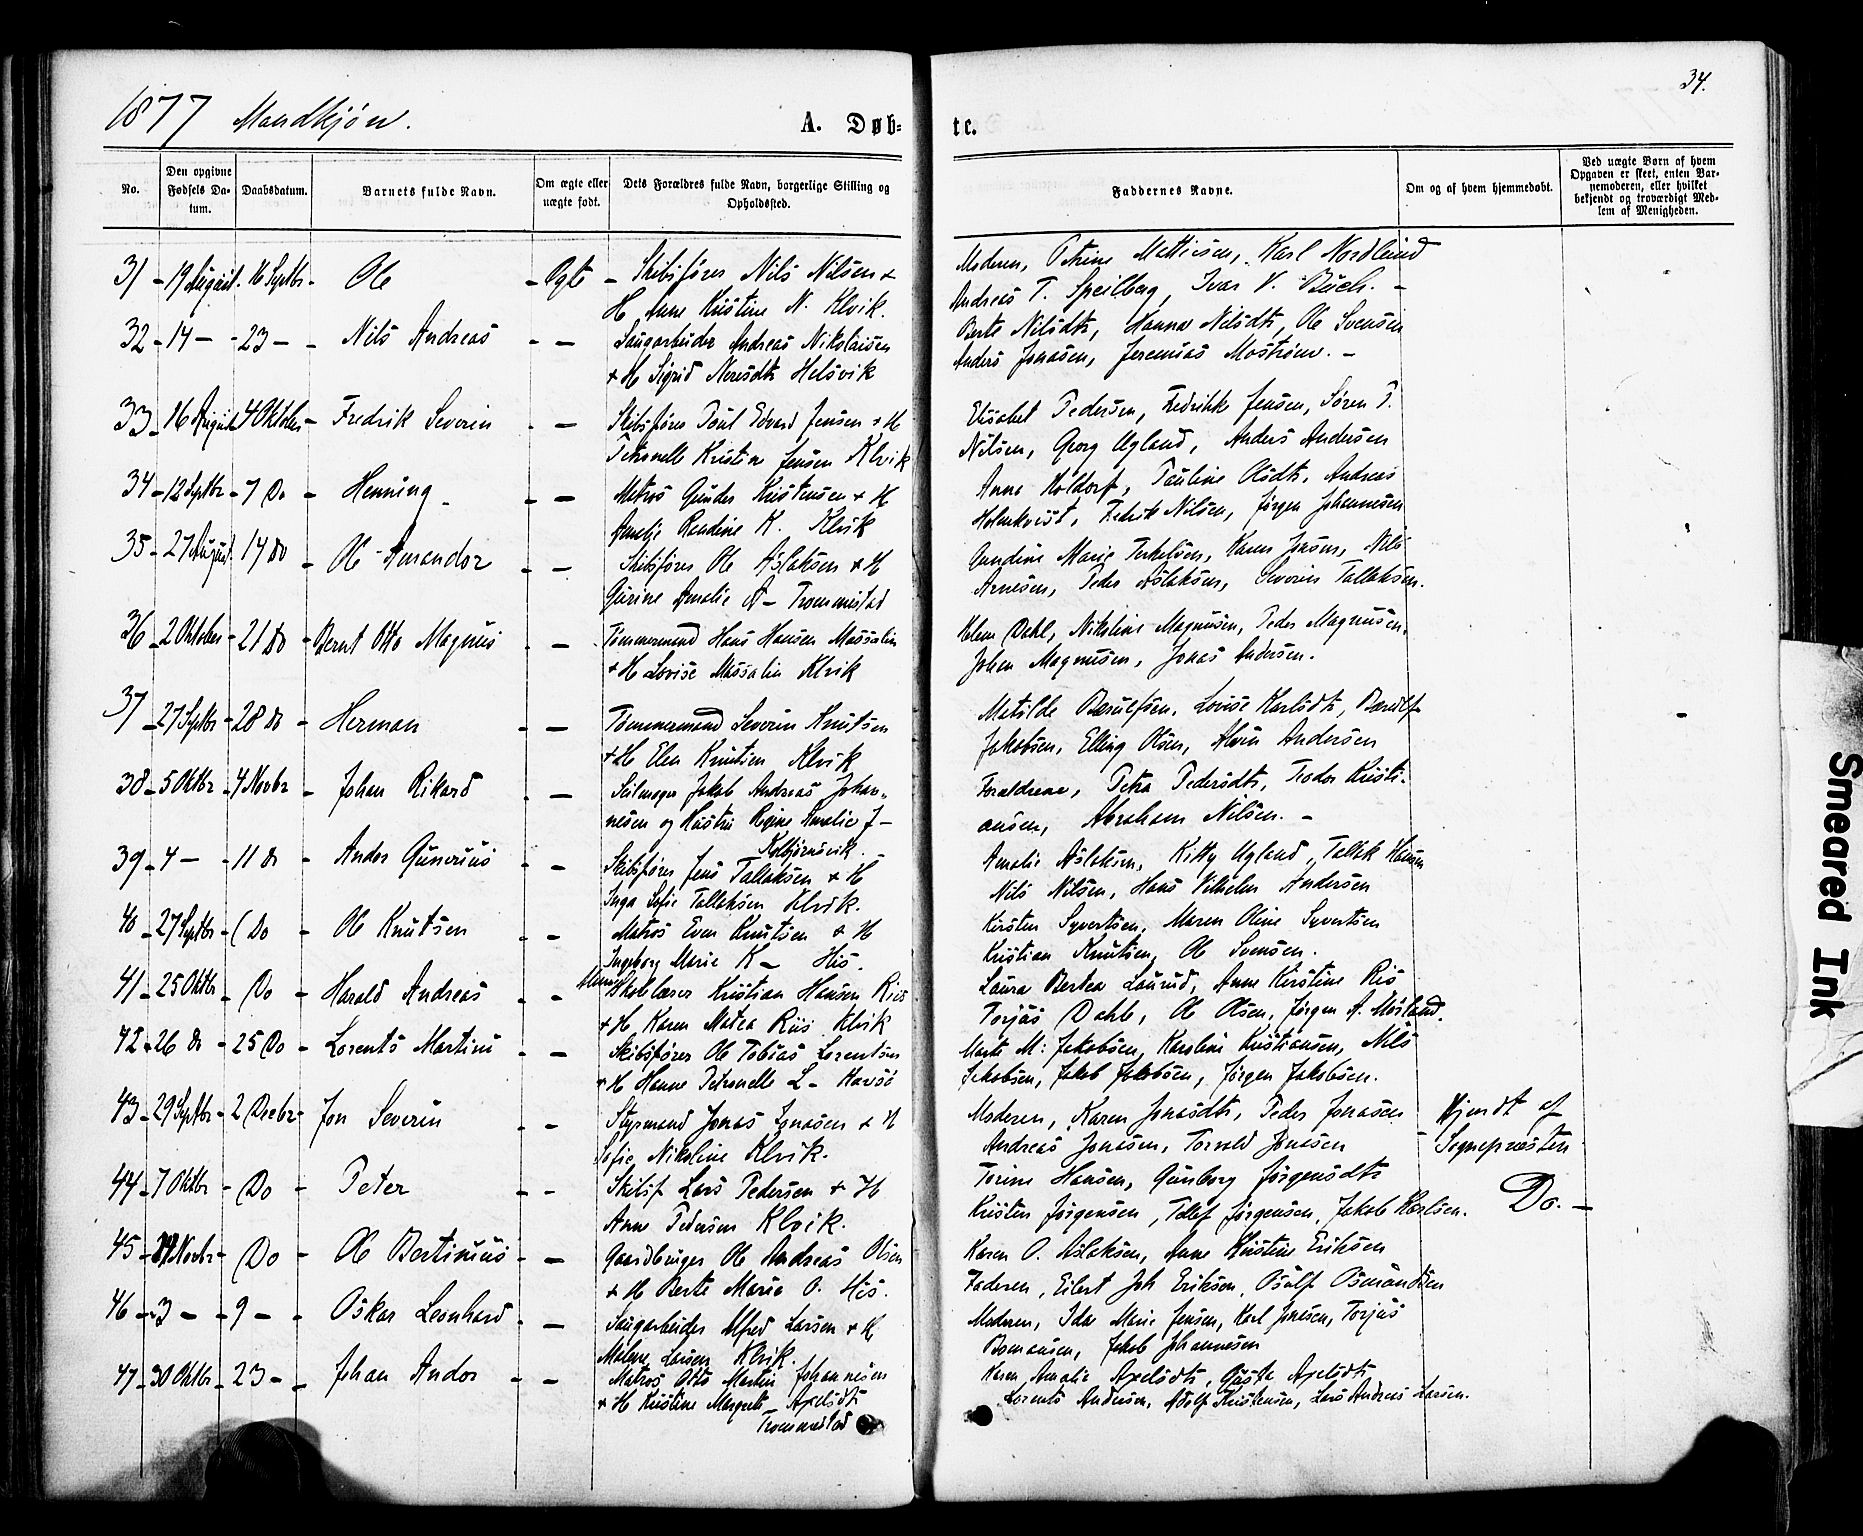 34.
1877 Mandkjøn.
A. Døb-
te.
No.
Den opgivne Fødsels Da-tum.
Daabsdatum.
Barnets fulde Navn.
Om ægte eller uægte født.
Dets Forældres fulde Navn, borgerlige Stilling og Opholdssted.
Faddernes Navne.
Om og af hvem hjemmedøbt.
Ved uægte Børn af hvem Opgaven er skeet, enten Bar-nemoderen, eller hvilket bekjendt og troværdigt Med-lem af Menigheden.
31 - 19 August - 16 Septbr - Ole - Ægte - Skibsfører Nils Nilsen +
H Anne Kristine N. Klvik.
Moderen, Petrine Mathisen, Karl Nordlund
Andreas T. Speilberg, Ivar V. Buch. -
32 - 14 - - 23 - - Nils Andreas - - Saugarbeider Andreas Nikolaisen
+ H Sigrid Helsvik
Berte Nilsdtr, Hanna Nilsdtr, Ole Svensen
Anders Jonasen, Jeremias Mostrøm. -
33 - 16 August 4 Oktober - Fredrik Severin - - Skibsfører Poul Edvard Jensen + H
Petronelle Kristine Jensen Klvik
Elisabet Pedersen, Fredrikke Jensen, Søren P.
Nilsen, Georg Ugland, Anders Andersen
34 - 12 Septbr - 7 Do - Henning - - - Matros Gunder Kristensen + H
Amalie K. Klvik
Anne Holdorf, Pauline Olsdtr, Andreas
Holmkvist, Fredrik Nilsen, Jørgen Johannesen
35 - 27 August 14 Do - Ole Amandor - - Skibsfører Ole Aslaksen + H
Gurine Amalie A - Trommestad
Gundine Marie Terkelsen, Karen Jensen, Nils
Arnesen, Peder Aslaksen, Severin Tallaksen.
36 - 2 Oktober - 21 Do - Bernt Otto Magnus - - Tømmermand Hans Hansen Massalin
+ H Lovise Massalin Klvik
Helene Dahl, Nikoline Magnusen, Peder Magnusen,
Johan Magnusen, Jonas Andersen.
37 - 27 Septbr - 28 Do - Herman - - Tømmermand Severin Knutsen
+ H Elen Knutsen Klvik
Matilde Berulfsen, Lovise Karlsdtr, Berulf
Jakobsen, Elling Olsen, Alvin Andersen
38 - 5 Oktbr - 4 Novbr - Johan Rikard - - Seilmager Jakob Andreas Johan-
nesen og Hustru Regine Amalie J -
Kolbjørnsvik.
Forældrene, Petra Pedersdtr, Teodor Kristi-
ansen, Abraham Nilsen. -
39 - 4 - 11 Do - Andor Gunerius - - Skibsfører Jens Tallaksen + H
Inga Sofie Tallaksen Klvik.
Amalie Aslaksen, Kitty Ugland, Tallak Hansen
Nils Nilsen, Hans Vilhelm Andersen
40 - 27 Septbr - Do - Ole Knutsen - - Matros Even Knutsen + H
Ingeborg Marie K - His.
Kirsten Syvertsen, Maren Oline Syvertsen
Kristian Knutsen, Ole Svensen.
41 - 25 Oktbr - Do - Harald Andreas - - Skolelærer Kristian Hansen Riis
+ H Karen Matea Riis Klvik
Laura Bertea Laurud, Anne Kirstine Riis
Torjus Dahle, Ole Olsen, Jørgen A. Møsland.
42 - 26 Do - 25 Do - Lorents Martin - - Skibsfører Ole Tobias Lorentsen
+ H Hanne Petronelle L - Havsö
Marte M: Jakobsen, Karoline Kristiansen, Nils
Jakobsen, Jakob Jakobsen, Jörgen Jakobsen.
43 - 29 Septbr - 2 Decbr - Jon Severin - - Styrmand Jonas Jonasen + H
Sofie Nikoline Klvik.
Moderen, Karen Jonasdtr, Peder Jonasen
Andreas Jonasen, Torvald Jonasen
Hjemdt af
Sognepræsten
44 - 7 Oktbr - Do - Peter - - Skibsf Lars Pedersen + H
Anne Pedersen Klvik.
Torine Hansen, Gunborg Jørgensdtr
Kristen Jørgensen, Tellef Jørgensen, Jakob Karlsen.
Do. -
45 - Novbr - Do - Ole Bertinius - - Gaardbruger Ole Andreas Olsen
+ H Berte Marie O. His.
Karen O. Aslaksen, Anne Kristine Eriksen
Faderen, Eilert Joh Eriksen, Osulf Osmundsen
46 - 3 - - 9 - - Oskar Leonhard - - Saugarbeider Alfred Larsen + H
Malene Larsen Klvik.
Moderen, Ida Marie Jensen, Karl Jensen, Torjus
Bomansen, Jakob Johannesen
47 - 30 Oktbr - 23 - - Johan Andor - - Matros Otto Martin Johannesen
+ H Kristine Margrete Axelsdtr
Trommestad
Karen Amalie Axelsdtr, Guste Axelsdtr,
Lorents Andersen, Adolf Kristensen, Lars Andreas Larsen.
Smeared Ink